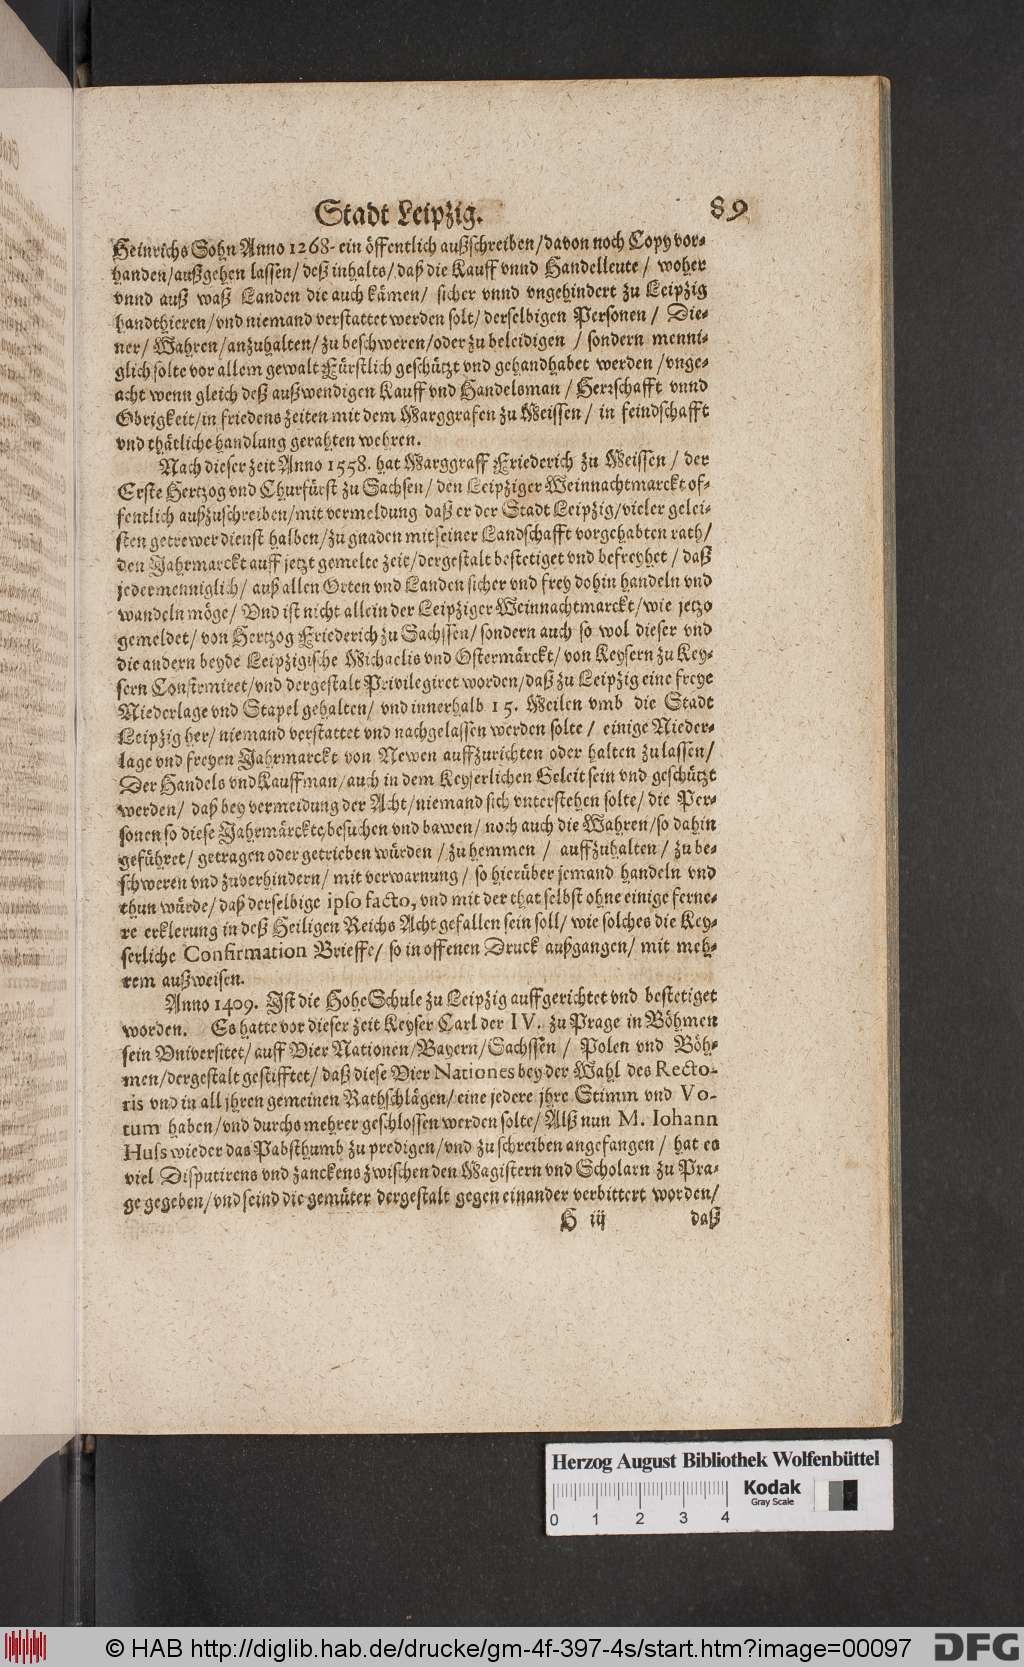 Stadt Leipzig. 89
Heinrichs Sohn Anno 1268. ein öffentlich außschreiben/davon noch Copy vor-
handen/außgehen lassen/deß inhalts/daß die Kauff vnnd Handelleute/ woher
vnnd auß waß Landen die auch kämen/ sicher vnnd vngehindert zu Leipzig
handthieren/vnd niemand verstattet werden solt/derselbigen Personen/ Die-
ner/ Wahren/anzuhalten/zu beschweren/oder zu beleidigen / sondern menni-
glich solte vor allem gewalt Fürstlich geschützt vnd gehandhabet werden /vnge-
acht wenn gleich deß außwendigen Kauff vnd Handelsman / Herrschafft vnnd
Obrigkeit/in friedens zeiten mit dem Marggrafen zu Meissen/ in feindschafft
vnd thätliche handlung gerahten wehren.
Nach dieser zeit Anno 1558. hat Marggraff Friederich zu Meissen / der
Erste Hertzog vnd Churfürst zu Sachsen/ den Leipziger Weinnachtmarckt of-
fentlich außzuschreiben/mit vermeldung daß er der Stadt Leipzig/vieler gelei-
sten getrewer dienst halben/zu gnaden mit seiner Landschafft vorgehabten rath/
den Jahrmarckt auff jetzt gemelte zeit/dergestalt bestetiget vnd befreyhet / daß
jedermenniglich/ auß allen Orten vnd Landen sicher vnd frey dohin handeln vnd
wandeln möge/ Vnd ist nicht allein der Leipziger Weinnachtmarckt/wie jetzo
gemeldet/ von Hertzog Friederich zu Sachssen/sondern auch so wol dieser vnd
die andern beyde Leipzigische Michaelis vnd Ostermärckt/von Keysern zu Key-
sern Confirmiret/vnd dergestalt Privilegiret worden/daß zu Leipzig eine freye
Niederlage vnd Stapel gehalten/ vnd innerhalb 15. Meilen vmb die Stadt
Leipzig her/niemand verstattet vnd nachgelassen werden solte/ einige Nieder-
lage vnd freyen Jahrmarckt von Newen auffzurichten oder halten zu lassen/
Der Handels vnd Kauffman/auch in dem Keyserlichen Geleit sein vnd geschützt
werden/ daß bey vermeidung der Acht/niemand sich vnterstehen solte/die Per-
sonen so diese Jahrmärckte besuchen vnd bawen/ noch auch die Wahren/so dahin
geführet/getragen oder getrieben würden /zu hemmen / auffzuhalten/ zu be-
schweren vnd zuverhindern/ mit verwarnung/ so hierüber jemand handeln vnd
thun würde/ daß derselbige ipso facto, vnd mit der that selbst ohne einige ferne-
re erklerung in deß Heiligen Reichs Acht gefallen sein soll/ wie solches die Key-
serliche Confirmation Brieffe/ so in offenen Druck außgangen/ mit meh-
rem außweisen.
Anno 1409. Ist die Hohe Schule zu Leipzig auffgerichtet vnd bestetiget
worden. Es hatte vor dieser zeit Keyser Carl der IV. zu Prage in Böhmen
sein Vniversitet/auff Vier Nationen/Bayern/Sachssen / Polen vnd Böh-
men/dergestalt gestifftet/ daß diese Vier Nationes bey der Wahl des Recto-
ris vnd in all jhren gemeinen Rathschlägen/ eine jedere jhre Stimm vnd Vo-
tum haben/vnd durchs mehrer geschlossen werden solte/ Alß nun M. Iohann
Huss wieder das Pabsthumb zu predigen/vnd zu schreiben angefangen / hat es
viel Disputirens vnd zanckens zwischen den Magistern vnd Scholarn zu Pra-
ge gegeben/vnd seind die gemüter dergestalt gegen einander verbittert worden/
H iij daß
Herzog August Bibliothek Wolfenbüttel
Kodak
Gray Scale
0 1 2 3 4
© HAB http://diglib.hab.de/drucke/gm-4f-397-4s/start.htm?image=00097 DFG